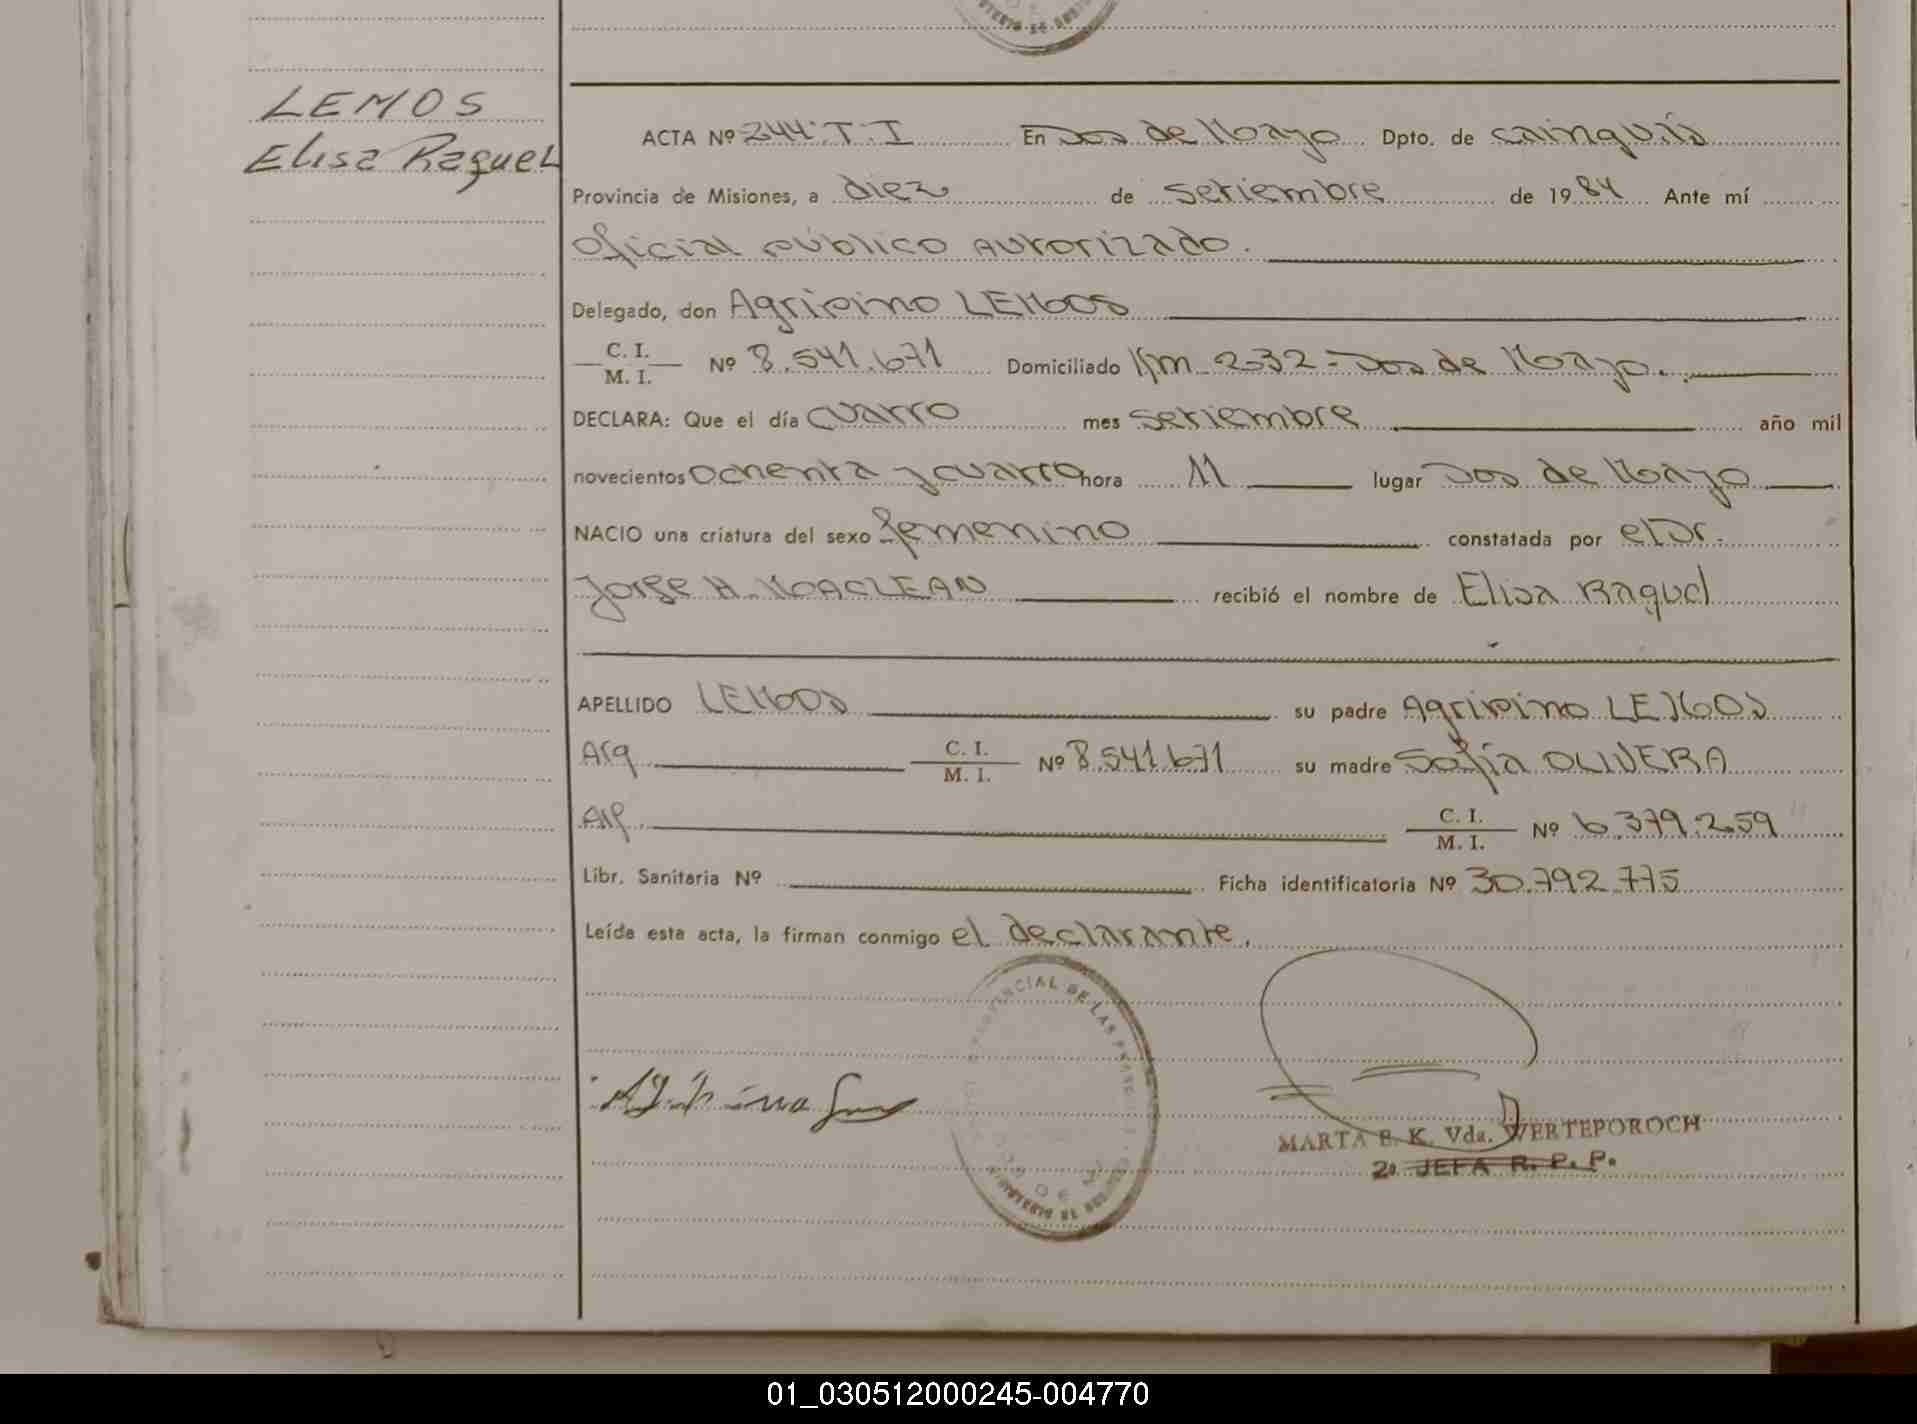 LEMOS
Elisa Raquel
ACTA Nº 244·T·I En Dos de Mayo Dpto. de Cainguás
Provincia de Misiones, a diez de setiembre de 1984 Ante mí
oficial público autorizado.
Delegado, don Agripino LEMOS
C. I.
M. I.
Nº 8.541.671 Domiciliado Km 232 - Dos de Mayo.
DECLARA: Que el día cuatro mes setiembre año mil
novecientos ochenta y cuatro hora 11 lugar Dos de Mayo
NACIO una criatura del sexo femenino constatada por el Dr.
Jorge H. MACLEAN recibió el nombre de Elisa Raquel
APELLIDO LEMOS su padre Agripino LEMOS
Arg C. I.
M. I.
Nº 8.541.671 su madre Sofía OLIVERA
Arg C. I.
M. I.
Nº 6.379.259
Libr. Sanitaria Nº Ficha identificatoria Nº 30.792.775
Leída esta acta, la firman conmigo el declarante.
MARTA E. K. Vda. WERTEPOROCH
2a JEFA R. P. P.
01_030512000245-004770